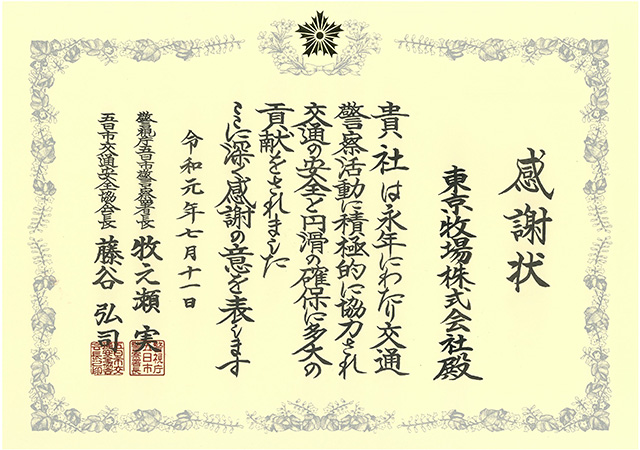 感謝状
東京牧場株式会社殿
貴社は永年にわたり交通
警察活動に積極的に協力され
交通の安全と円滑の確保に多大の
貢献をされました
ここに深く感謝の意を表します
令和元年七月十一日
警視庁五日市警察署長 牧之瀬 実
五日市交通安全協会長 藤谷 弘司